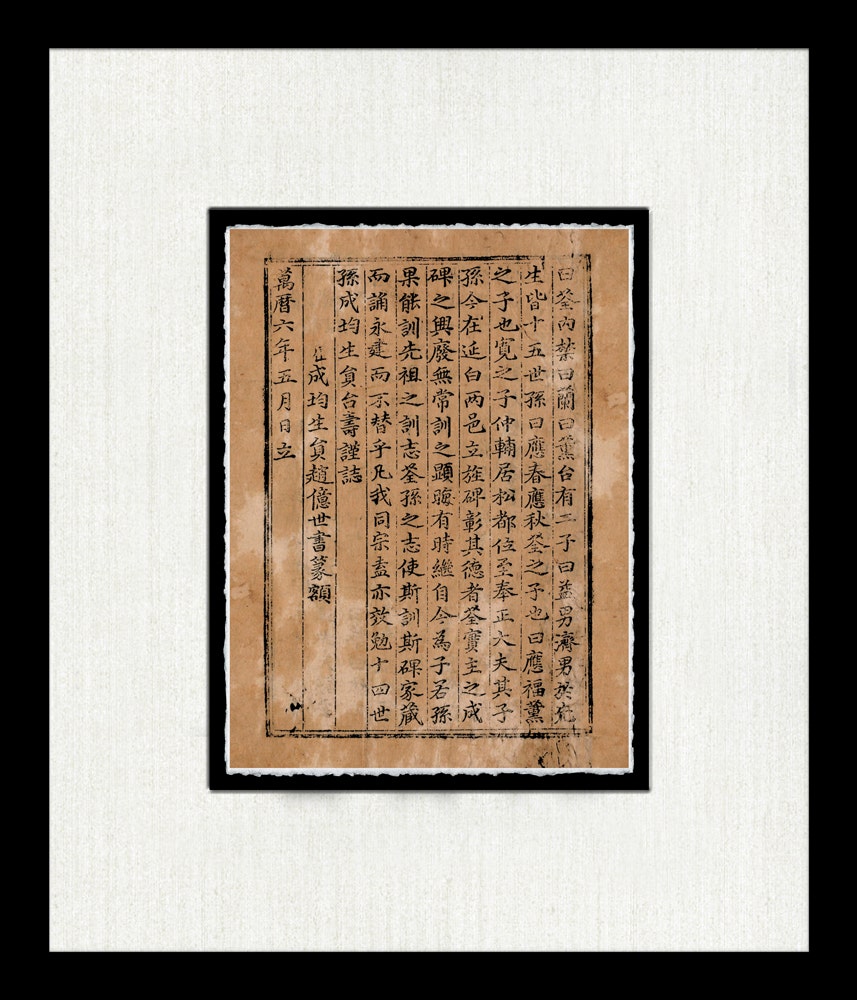 曰荃內禁曰蘭曰薰台有二子曰益男濟男於
生皆十五世孫曰應春應秋荃之子也曰應福薰
之子也寬之子仲輔居松都位至奉正大夫其子
孫今在延白两邑立旌碑彰其德者荃實主之成
碑之興廢無常訓之顯晦有時繼自今為子若孫
果能訓先祖之訓志荃孫之志使斯訓斯碑家藏
而誦永建而不替乎凡我同宗盍亦效勉十四世
孫成均生負台壽謹誌
成均生負趙億世書篆額
萬曆六年五月日立